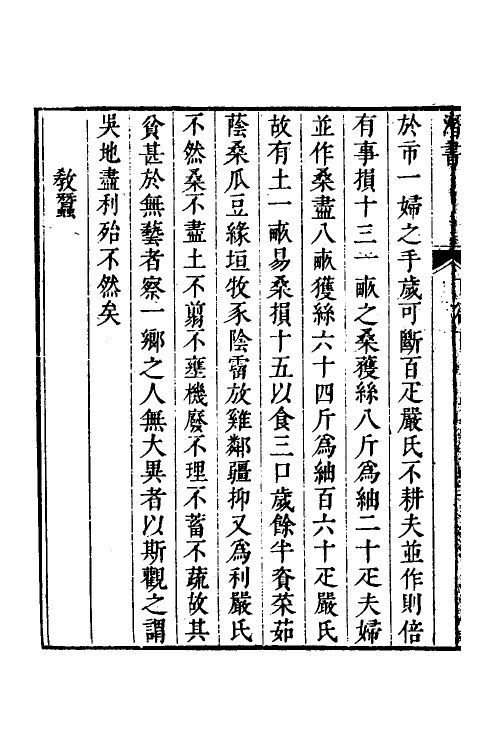 潛書
於市一婦之手歲可斷百疋嚴氏不耕夫並作則倍
有事損十三一畞之桑獲絲八斤爲紬二十疋夫婦
並作桑盡八畞獲絲六十四斤爲紬百六十疋嚴氏
故有土一畞易桑損十五以食三口歲餘半資菜茹
蔭桑瓜豆緣垣牧豕陰霤放雞鄰疆抑又爲利嚴氏
不然桑不盡土不翦不壅機廢不理不蓄不蔬故其
貧甚於無藝者察一鄉之人無大異者以斯觀之謂
吳地盡利殆不然矣
教蠶